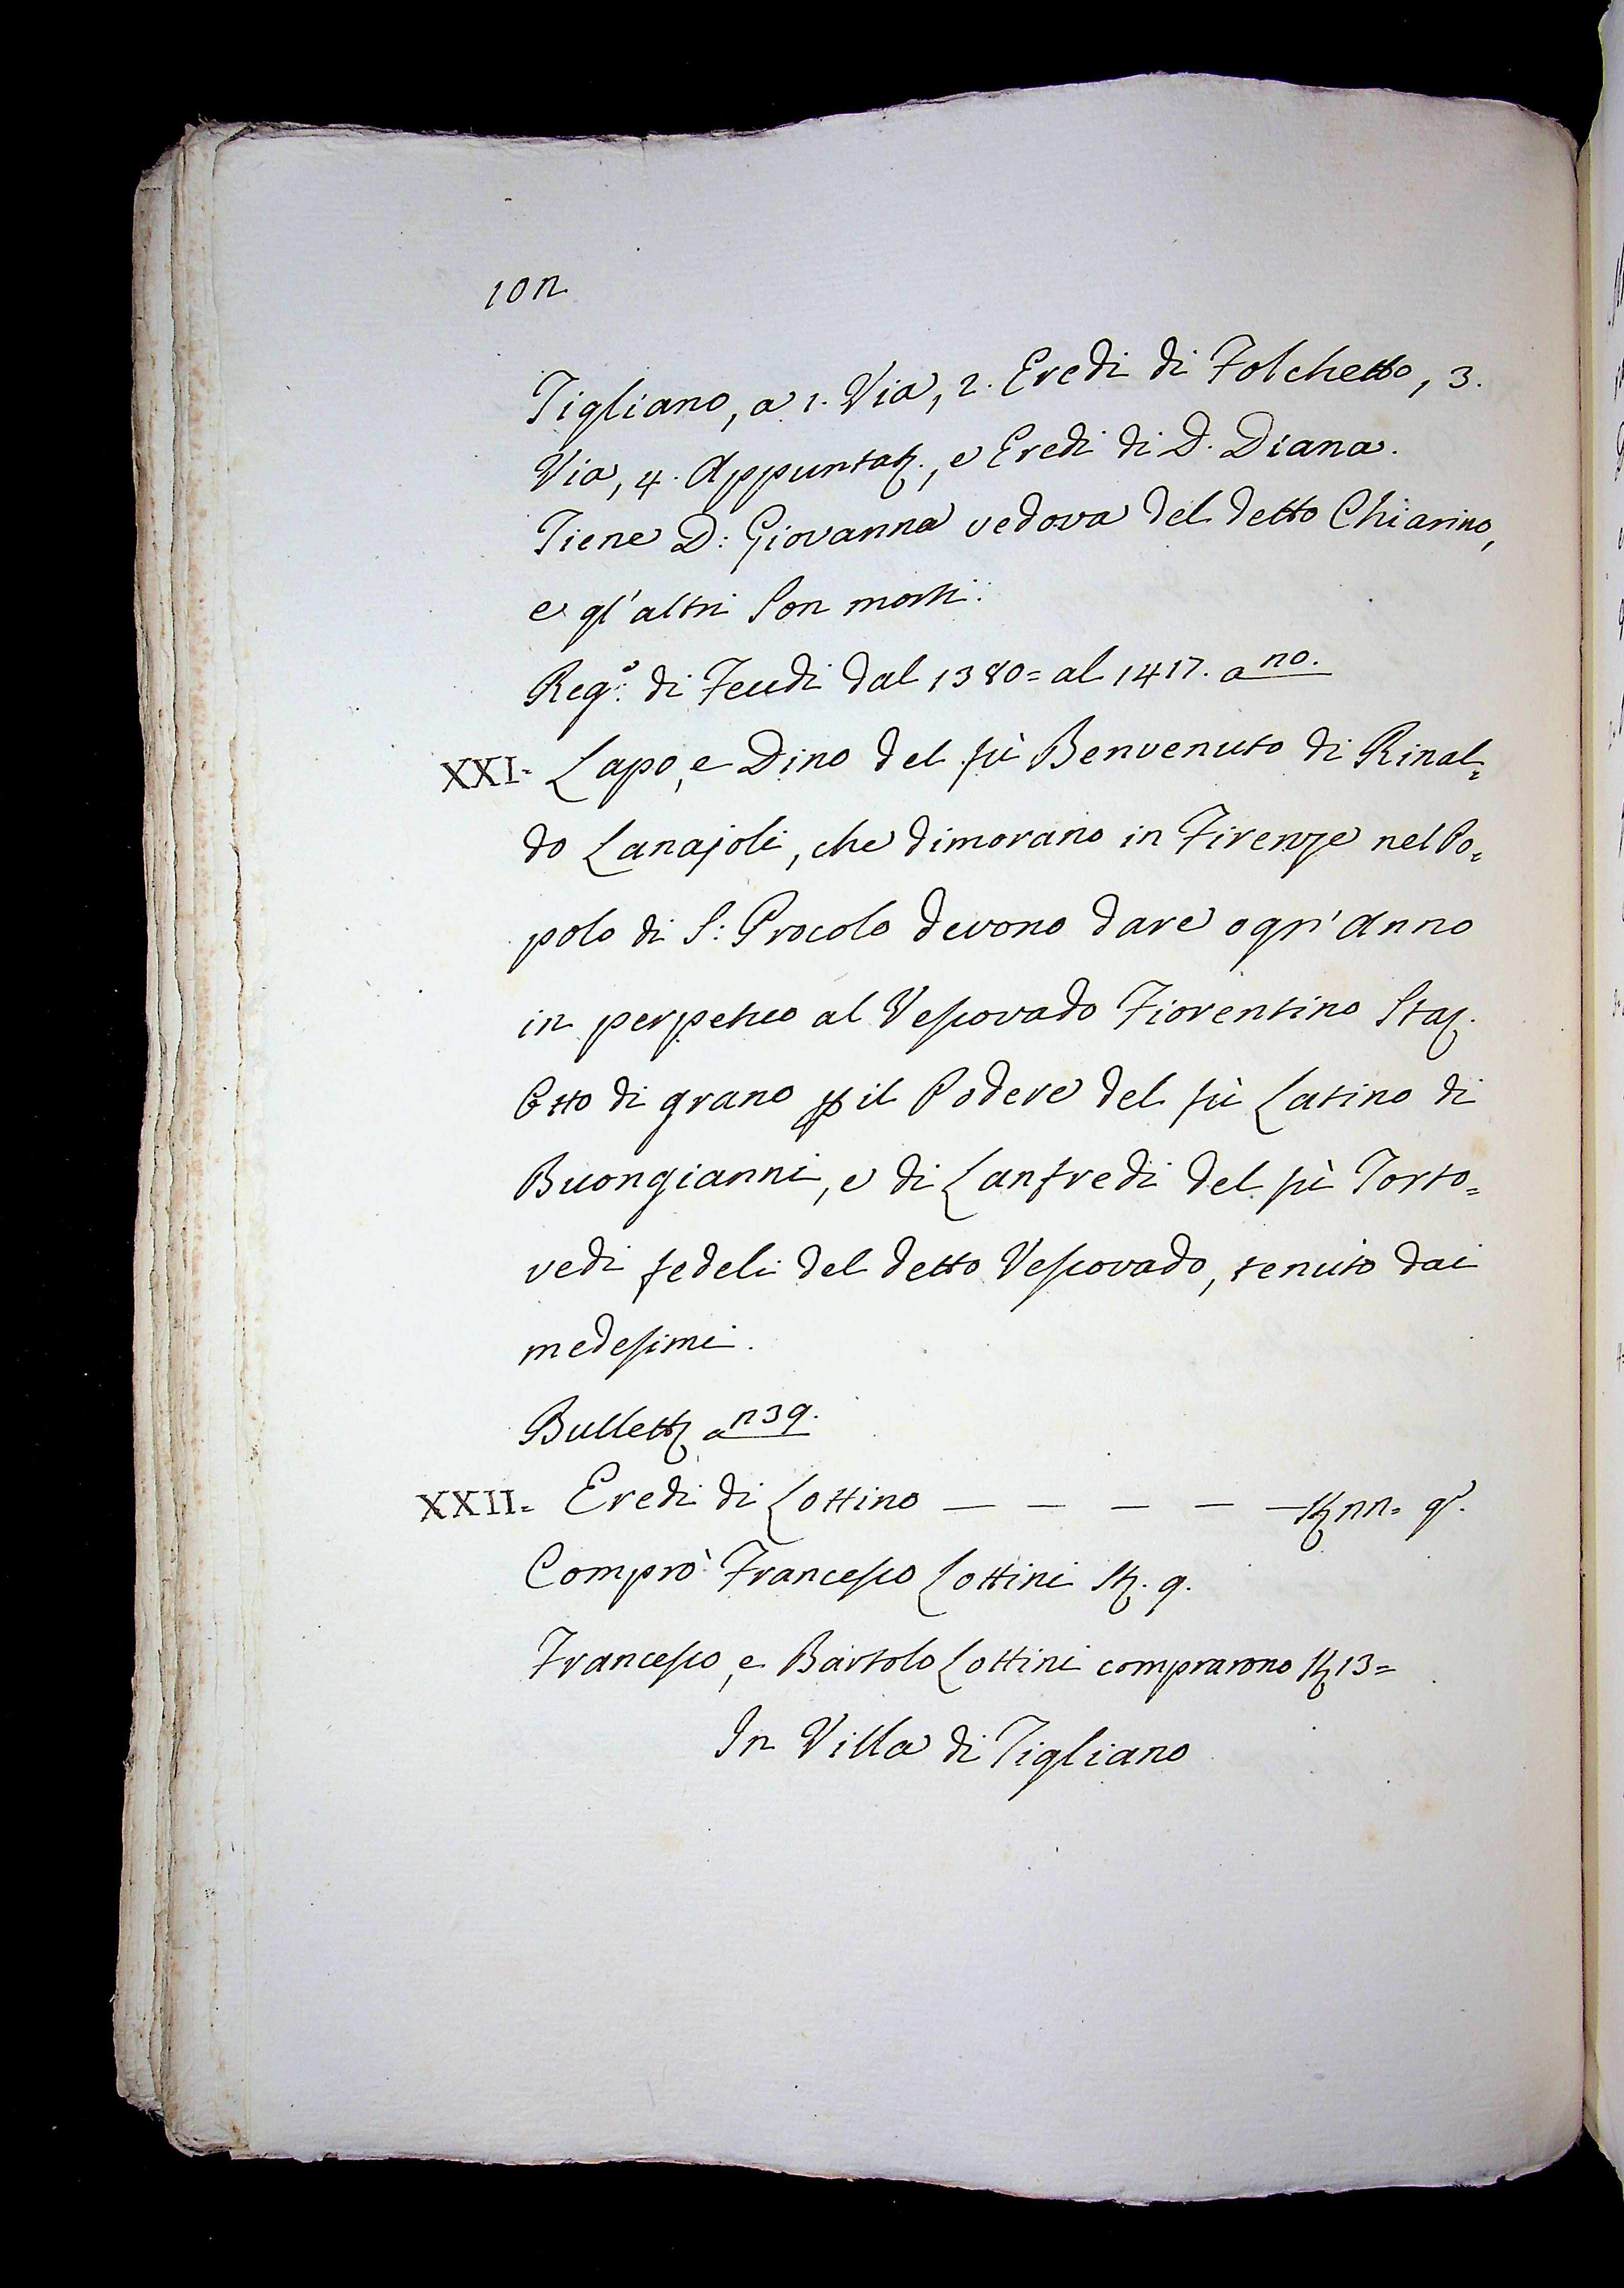 102
Tigliano, a 1. Via, 2. Eredi di Folchetto, 3.
Via, 4. Appuntaz., e Eredi di D. Diana.
Tiene D: Giovanna vedova del detto Chiarino,
e gl'altri son morti.
Reg.º di Feudi dal 1380= al 1417. a 20.
XXI= Lapo, e Dino del fù Benvenuto di Rinal=
do Lanajoli, che dimorano in Firenze nel Po=
polo di S: Procolo devono dare ogn'Anno
in perpetuo al Vescovado Fiorentino Staz.
Otto di grano p il Podere del fù Latino di
Buongianni, e di Lanfredi del fù Torto=
vedi fedeli del detto Vescovado, tenuto dai
medesimi.
Bullett a 239.
XXII= Eredi di Lottino — — — — — St 22= gr.
Comprò Francesco Lottini St. 9.
Francesco, e Bartolo Lottini comprarono St 13=
In Villa di Tigliano